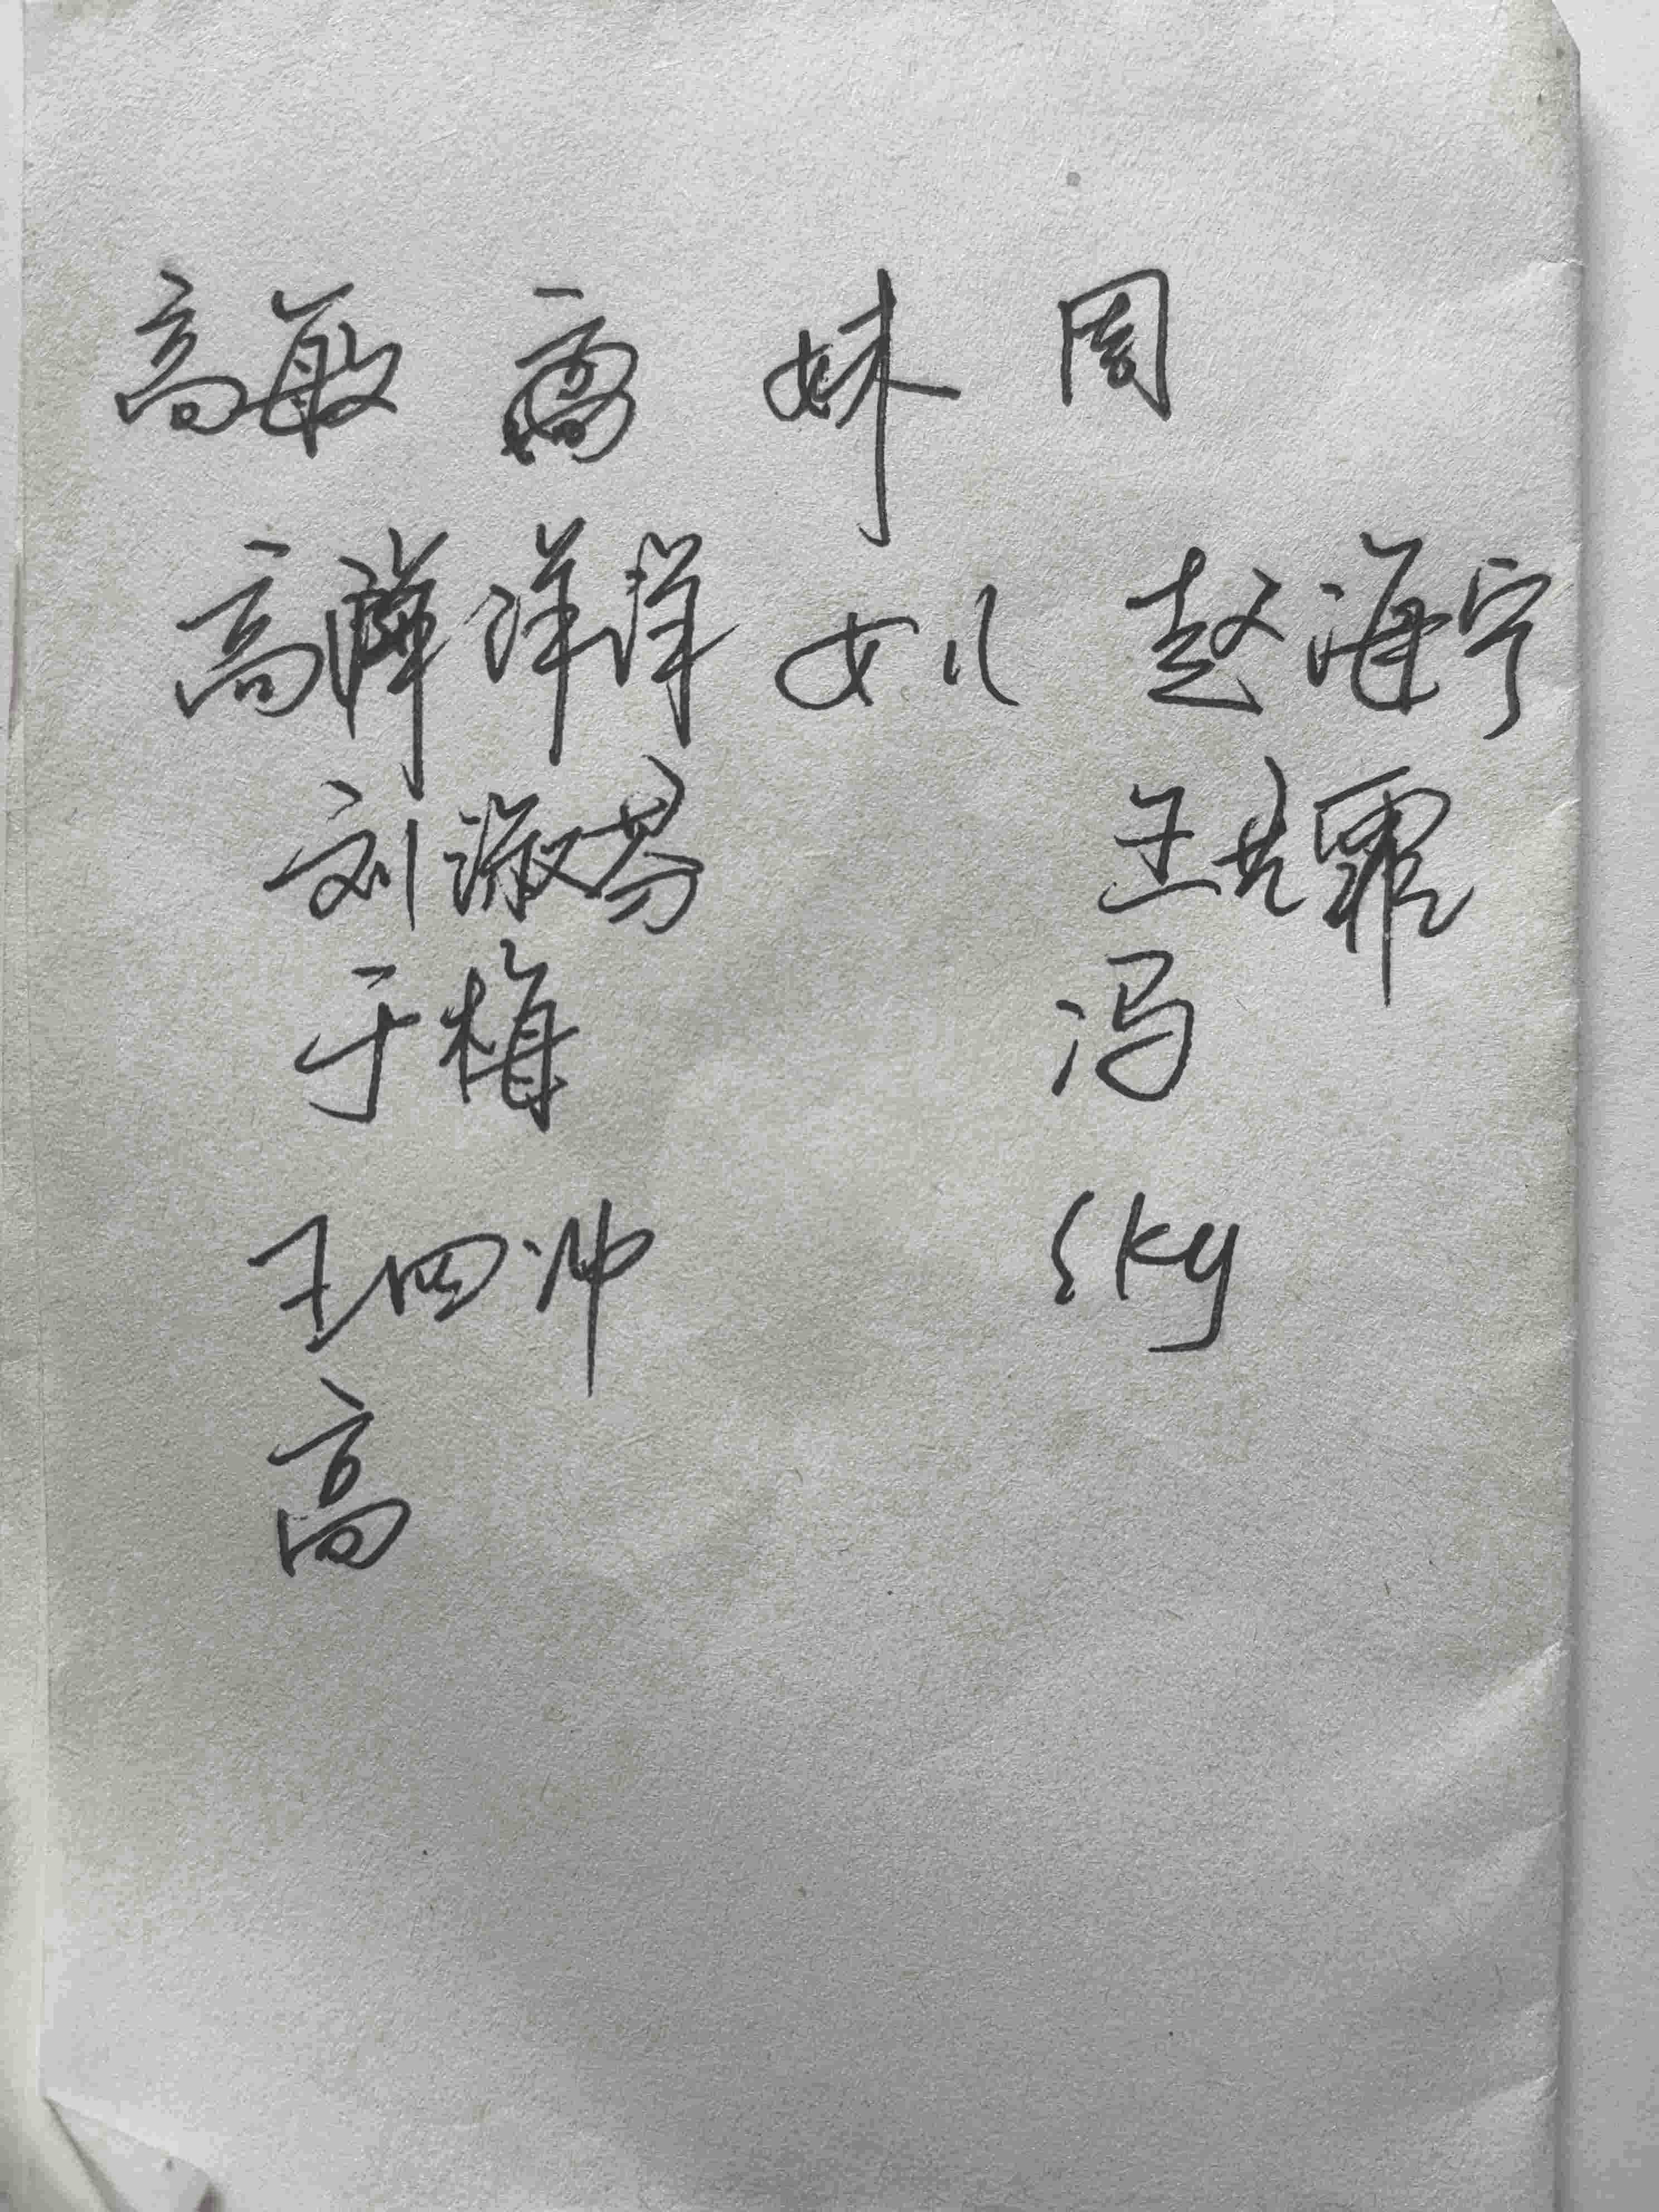 高敏 高 妹 周
高 洋洋 女儿 赵海宁
刘淑芬 王洪霞
于梅 冯
王四帅 sky
高